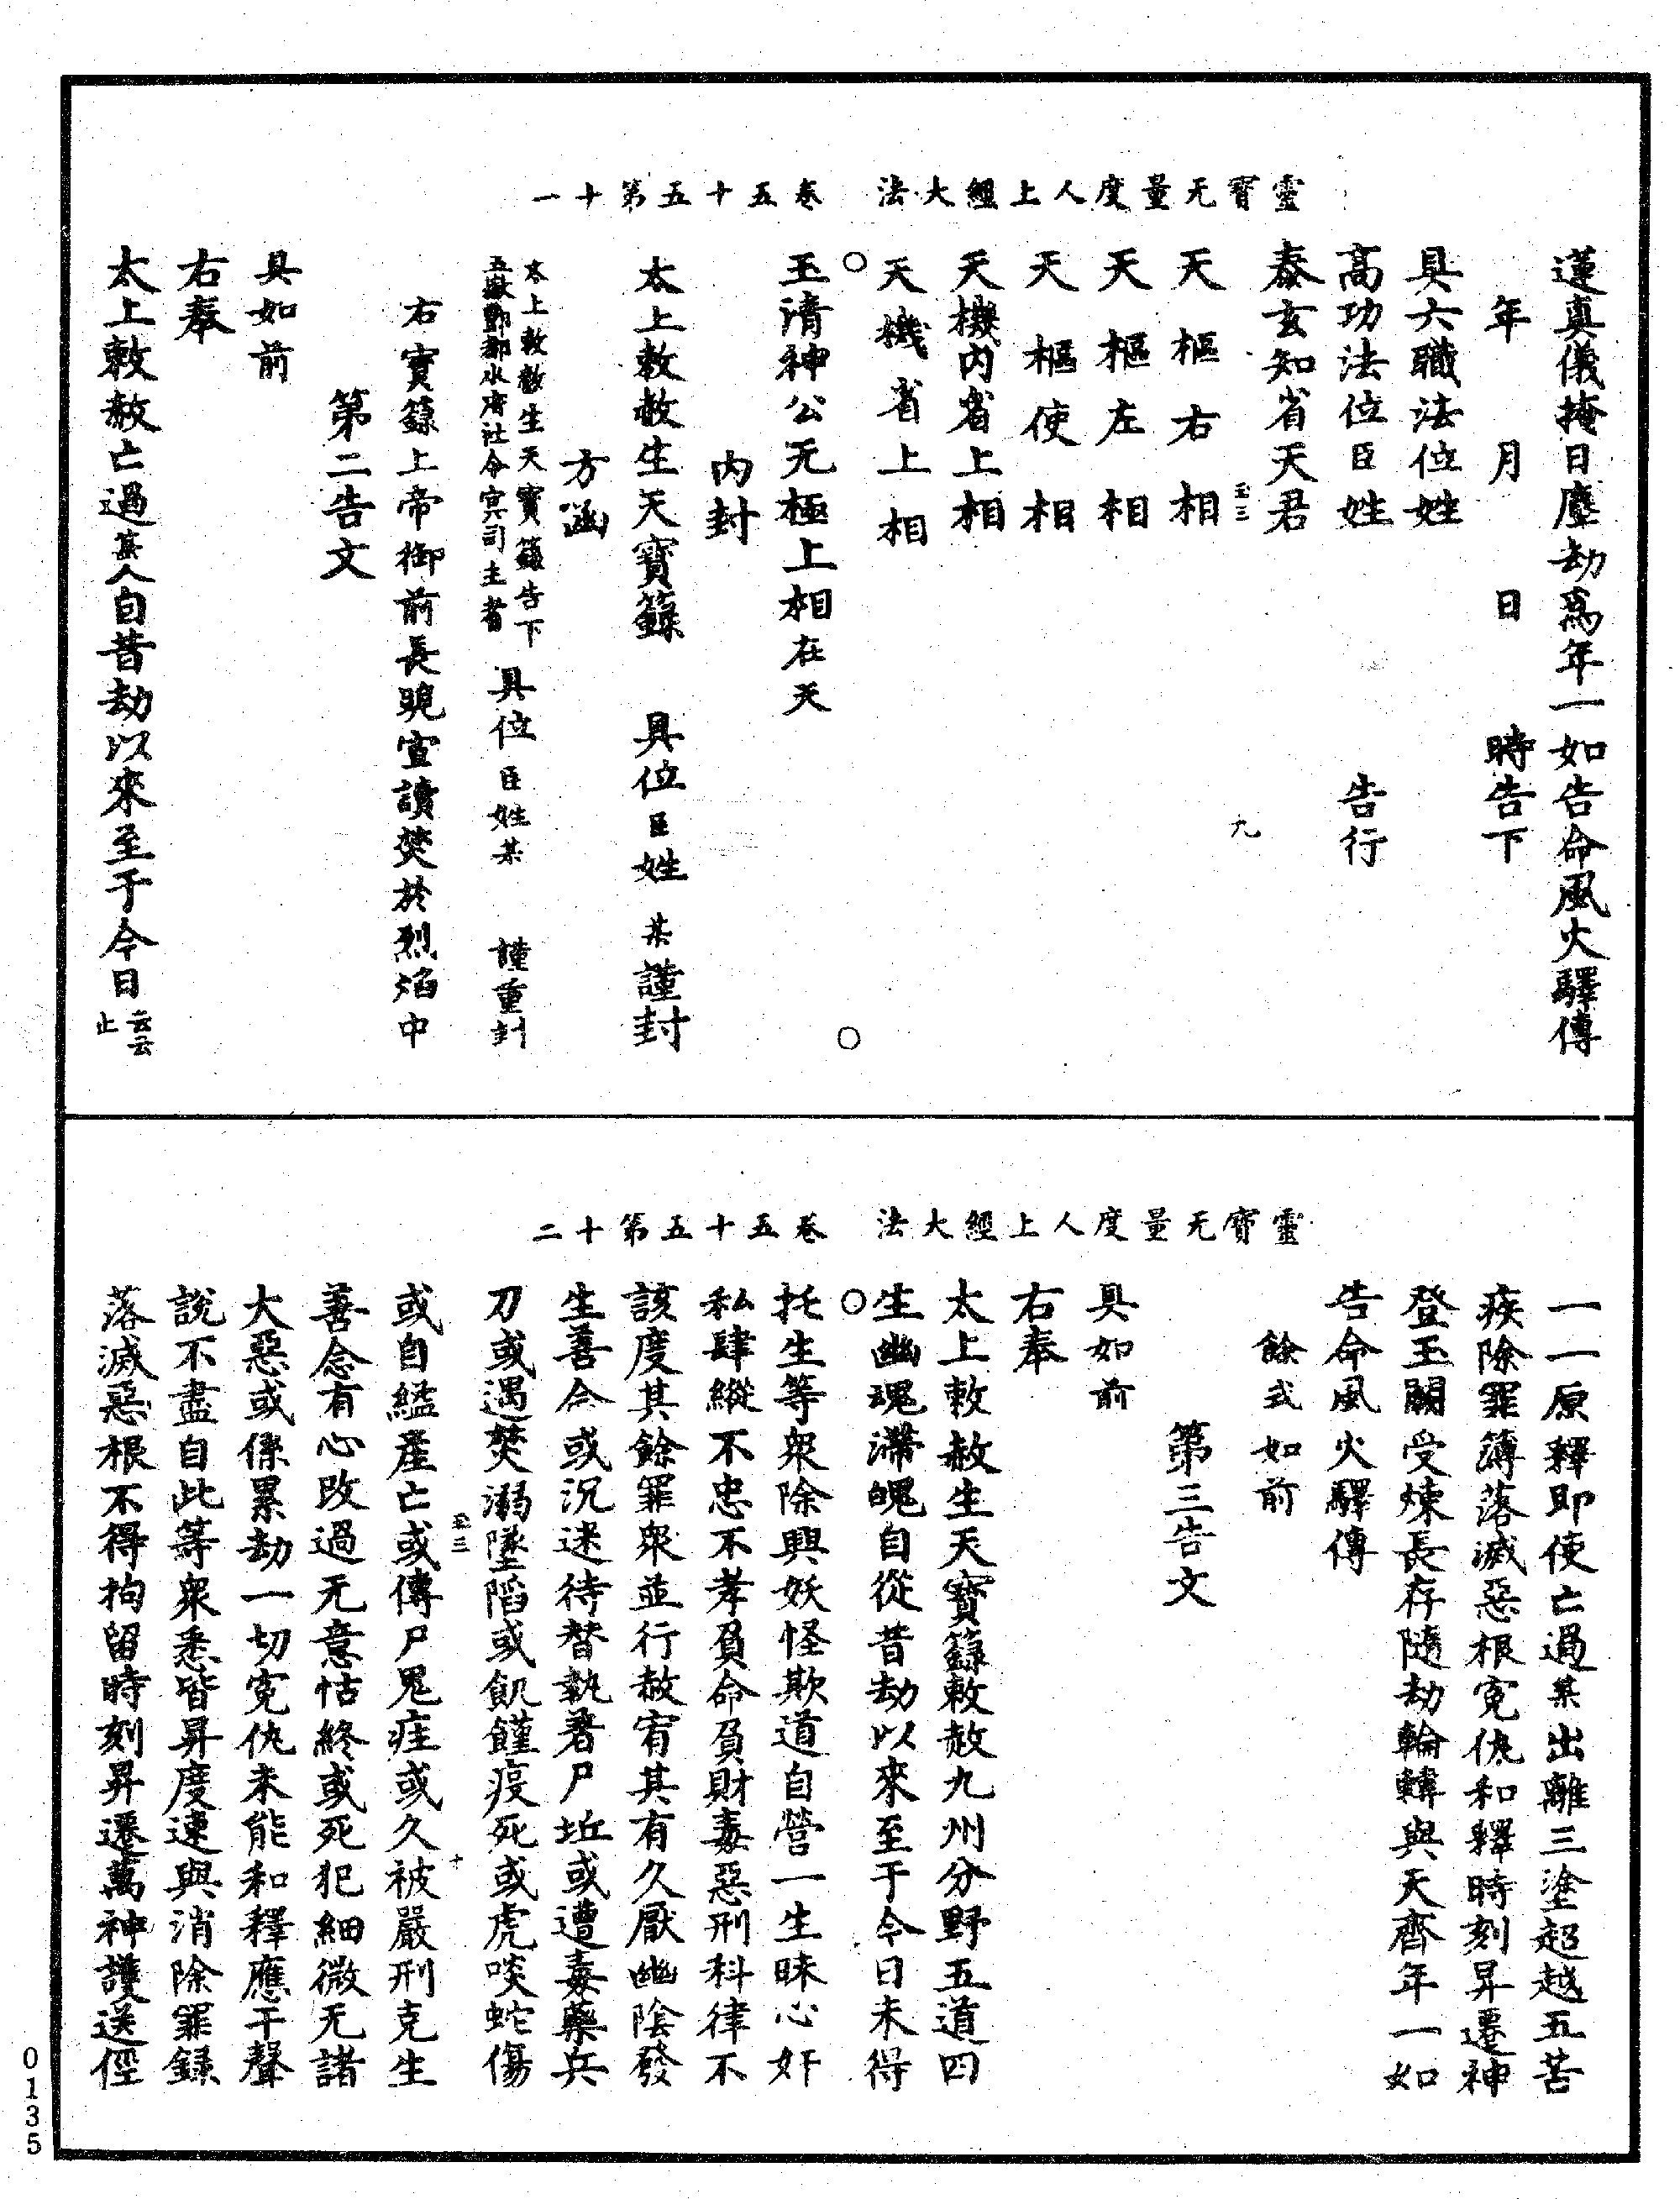 靈寶无量度人上經大法　卷五十五第十一
蓮真儀掩日塵劫爲年一如告命風火驛傳
年　月　日　時告下
具六職法位姓
高功法位臣姓　告行
泰玄知省天君
天樞右相
天樞左相
天樞使相
天機內省上相
天機省上相
玉清神公无極上相在天
內封
太上敕赦生天寶籙　具位臣姓某謹封
方函
太上敕赦生天寶籙告下
五嶽酆都水府社令冥司主者　具位臣姓某　謹重封
右寶籙上帝御前長跪宣讀焚於烈焰中
第二告文
具如前
右奉
太上敕赦亡過某人自昔劫以來至于今日云云止
靈寶无量度人上經大法　卷五十五第十二
一一原釋即使亡過某出離三塗超越五苦
疾除罪簿落滅惡根冤仇和釋時刻昇遷神
登玉闕受煉長存隨劫輪轉與天齊年一如
告命風火驛傳
餘式如前
第三告文
具如前
右奉
太上敕赦生天寶籙敕赦九州分野五道四
生幽魂滯魄自從昔劫以來至于今日未得
托生等衆除興妖怪欺道自營一生昧心奸
私肆縱不忠不孝負命負財毒惡刑科律不
該度其餘罪衆並行赦宥其有久厭幽陰發
生善念或沉迷待替執著尸坵或遭毒藥兵
刀或遇焚溺墜陷或飢饉疫死或虎啖蛇傷
或自縊產亡或傳尸鬼疰或久被嚴刑克生
善念有心改過无意怙終或死犯細微无諸
大惡或係累劫一切冤仇未能和釋應干聲
說不盡自此等衆悉皆昇度速與消除罪錄
落滅惡根不得拘留時刻昇遷萬神護送徑
0135